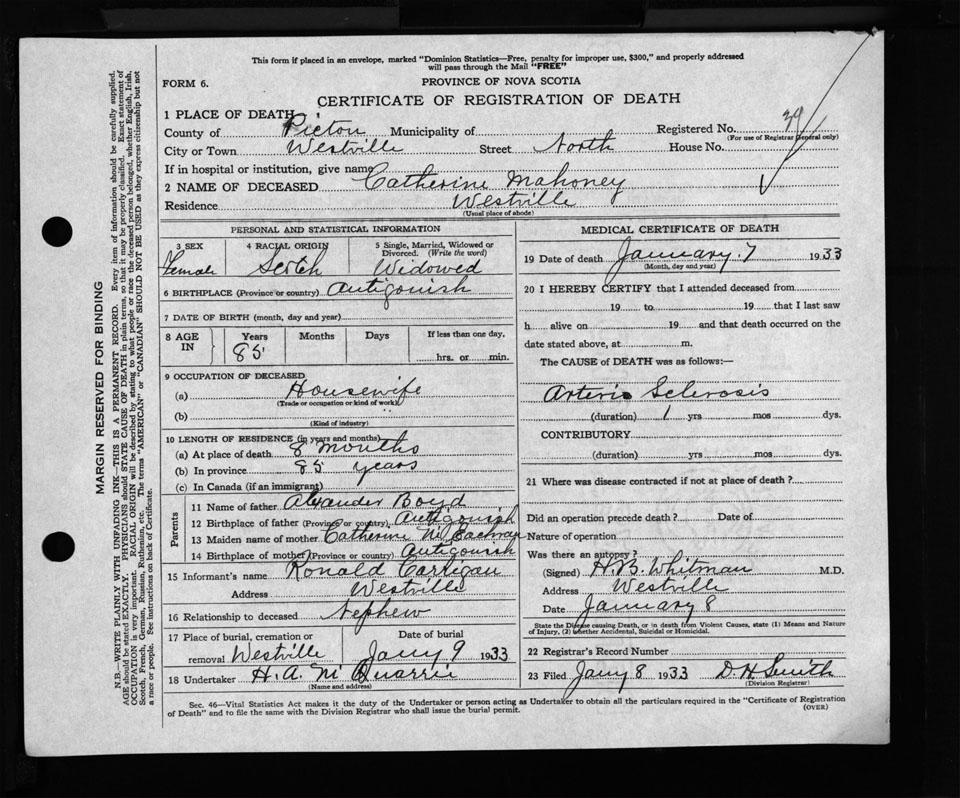 This form if placed in an envelope, marked "Dominion Statistics—Free, penalty for improper use, $300," and properly addressed
will pass through the Mail "FREE"
FORM 6.
PROVINCE OF NOVA SCOTIA
CERTIFICATE OF REGISTRATION OF DEATH
1 PLACE OF DEATH
County of Pictou Municipality of Registered No. 39
(For use of Registrar General only)
City or Town Westville Street North House No.
If in hospital or institution, give name
2 NAME OF DECEASED Catherine Mahoney
Residence Westville
(Usual place of abode)
PERSONAL AND STATISTICAL INFORMATION
3 SEX 4 RACIAL ORIGIN 5 Single, Married, Widowed or
Divorced. (Write the word)
Female Scotch Widowed
6 BIRTHPLACE (Province or country) Antigonish
7 DATE OF BIRTH (month, day and year)
8 AGE IN Years Months Days If less than one day,
85 hrs. or min.
9 OCCUPATION OF DECEASED
(a) Housewife
(Trade or occupation or kind of work)
(b)
(Kind of industry)
10 LENGTH OF RESIDENCE (in years and months)
(a) At place of death 8 months
(b) In province 85 years
(c) In Canada (if an immigrant)
Parents
11 Name of father Alexander Boyd
12 Birthplace of father (Province or country) Antigonish
13 Maiden name of mother Catherine McEachran
14 Birthplace of mother (Province or country) Antigonish
15 Informant's name Ronald Carrigan
Address Westville
16 Relationship to deceased Nephew
17 Place of burial, cremation or Date of burial
removal Westville Jany 9 1933
18 Undertaker H. A. McQuarrie
(Name and address)
MEDICAL CERTIFICATE OF DEATH
19 Date of death January 7 1933
(Month, day and year)
20 I HEREBY CERTIFY that I attended deceased from
19 to 19 that I last saw
h alive on 19 and that death occurred on the
date stated above, at m.
The CAUSE of DEATH was as follows:—
Arterio Sclerosis
(duration) 1 yrs mos dys.
CONTRIBUTORY
(duration) yrs mos dys.
21 Where was disease contracted if not at place of death?
Did an operation precede death? Date of
Nature of operation
Was there an autopsy?
(Signed) H.B. Whitman M.D.
Address Westville
Date January 8
State the Disease causing Death, or in death from Violent Causes, state (1) Means and Nature
of Injury, (2) whether Accidental, Suicidal or Homicidal.
22 Registrar's Record Number
23 Filed Jany 8 1933 D. H. Smith
(Division Registrar)
Sec. 46—Vital Statistics Act makes it the duty of the Undertaker or person acting as Undertaker to obtain all the particulars required in the "Certificate of Registration
of Death" and to file the same with the Division Registrar who shall issue the burial permit.
(OVER)
MARGIN RESERVED FOR BINDING
N.B.—WRITE PLAINLY WITH UNFADING INK—THIS IS A PERMANENT RECORD. Every item of information should be carefully supplied.
AGE should be stated EXACTLY. PHYSICIANS should STATE CAUSE OF DEATH in plain terms, so that it may be properly classified. Exact statement of
OCCUPATION is very important. RACIAL ORIGIN will be described by stating to what people or race the deceased person belonged, whether English, Irish,
Scotch, French, German, Russian, Ruthenian, etc. The terms "AMERICAN" or "CANADIAN" SHOULD NOT BE USED as they express citizenship but not
a race or people. See instructions on back of Certificate.